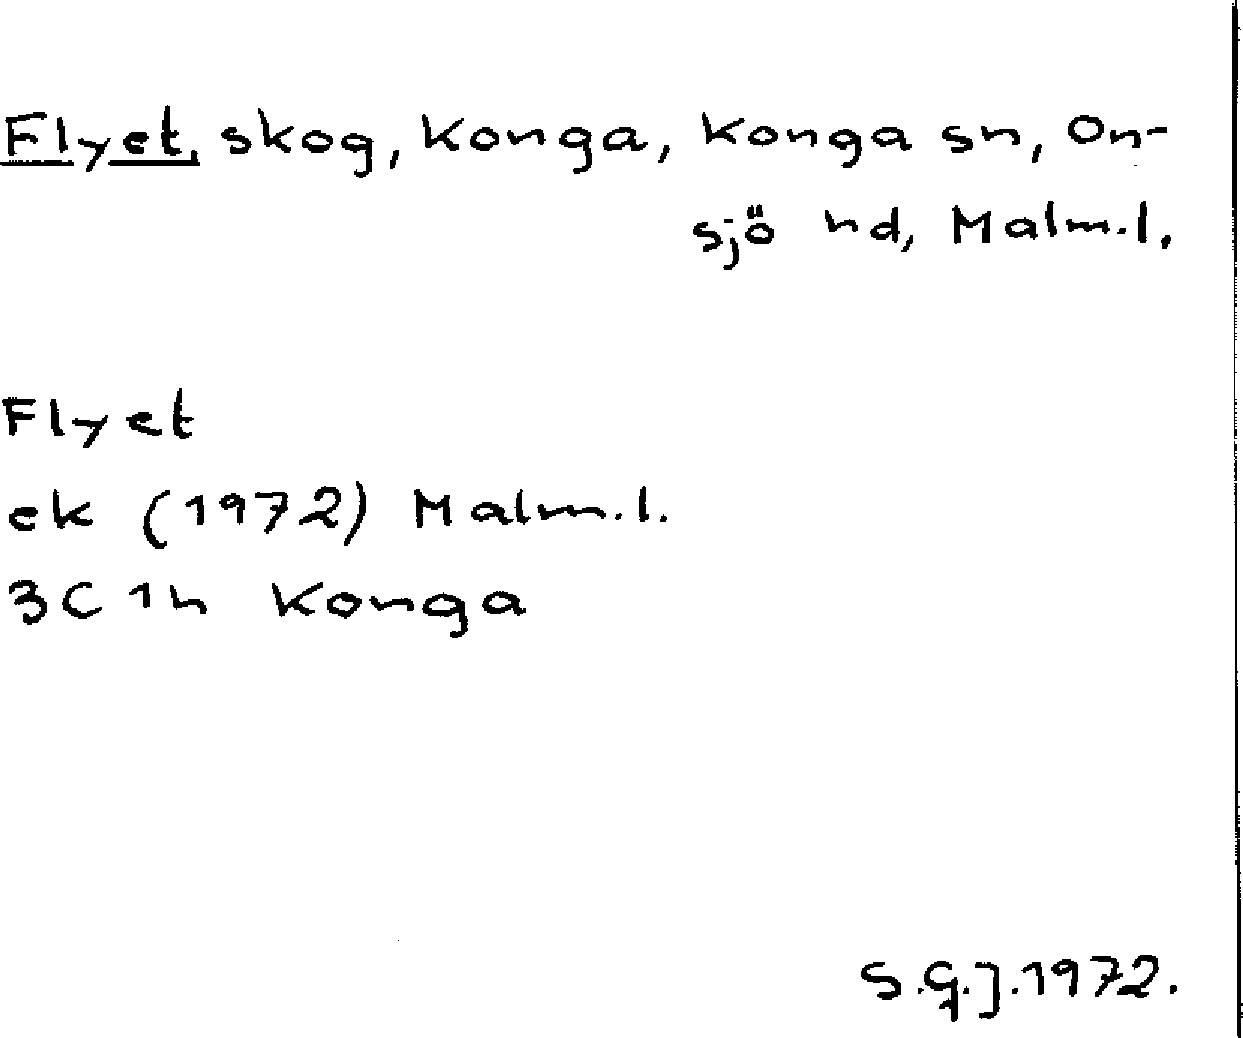 Flyet, skog, Konga, Konga sn, On-
sjö hd, Malm.l.
Flyet
ek (1972) Malm.l.
3C 1h Konga
S.G.J.1972.